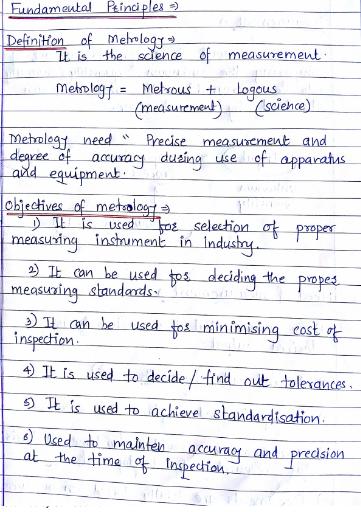 Fundamental Principles ⇒
Definition of Metrology ⇒
It is the science of measurement.
Metrology = Metrous + Logous
(measurement) (science)
Metrology need " Precise measurement and
degree of accuracy during use of apparatus
and equipment.
Objectives of metrology ⇒
1) It is used for selection of proper
measuring instrument in Industry.
2) It can be used for deciding the proper
measuring standards.
3) It can be used for minimising cost of
inspection.
4) It is used to decide / find out tolerances.
5) It is used to achieve standardisation.
6) Used to mainten accuracy and precision
at the time of inspection.